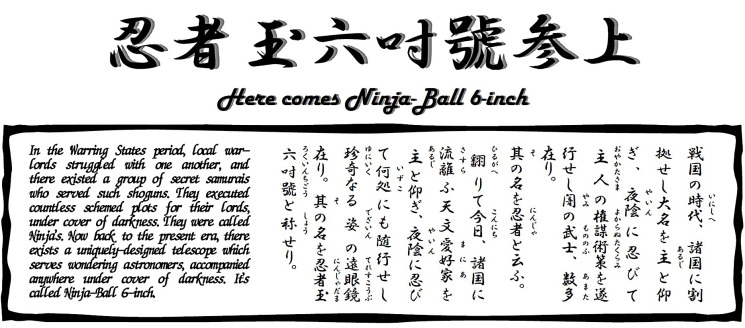 忍者玉六吋號参上
Here comes Ninja-Ball 6-inch
In the Warring States period, local war-
lords struggled with one another, and
there existed a group of secret samurais
who served such shoguns. They executed
countless schemed plots for their lords,
under cover of darkness. They were called
Ninja's. Now back to the present era, there
exists a uniquely-designed telescope which
serves wondering astronomers, accompanied
anywhere under cover of darkness. It's
called Ninja-Ball 6-inch.
戦国の時代、諸国に割
拠せし大名を主と仰
ぎ、夜陰に忍びて
主人の権謀術策を遂
行せし闇の武士、数多
在り。
其の名を忍者と云ふ。
翻りて今日、諸国に
流離ふ天文愛好家を
主と仰ぎ、夜陰に忍び
て何処にも随行せし
珍奇なる姿の遠眼鏡
在り。其の名を忍者玉
六吋號と称せり。